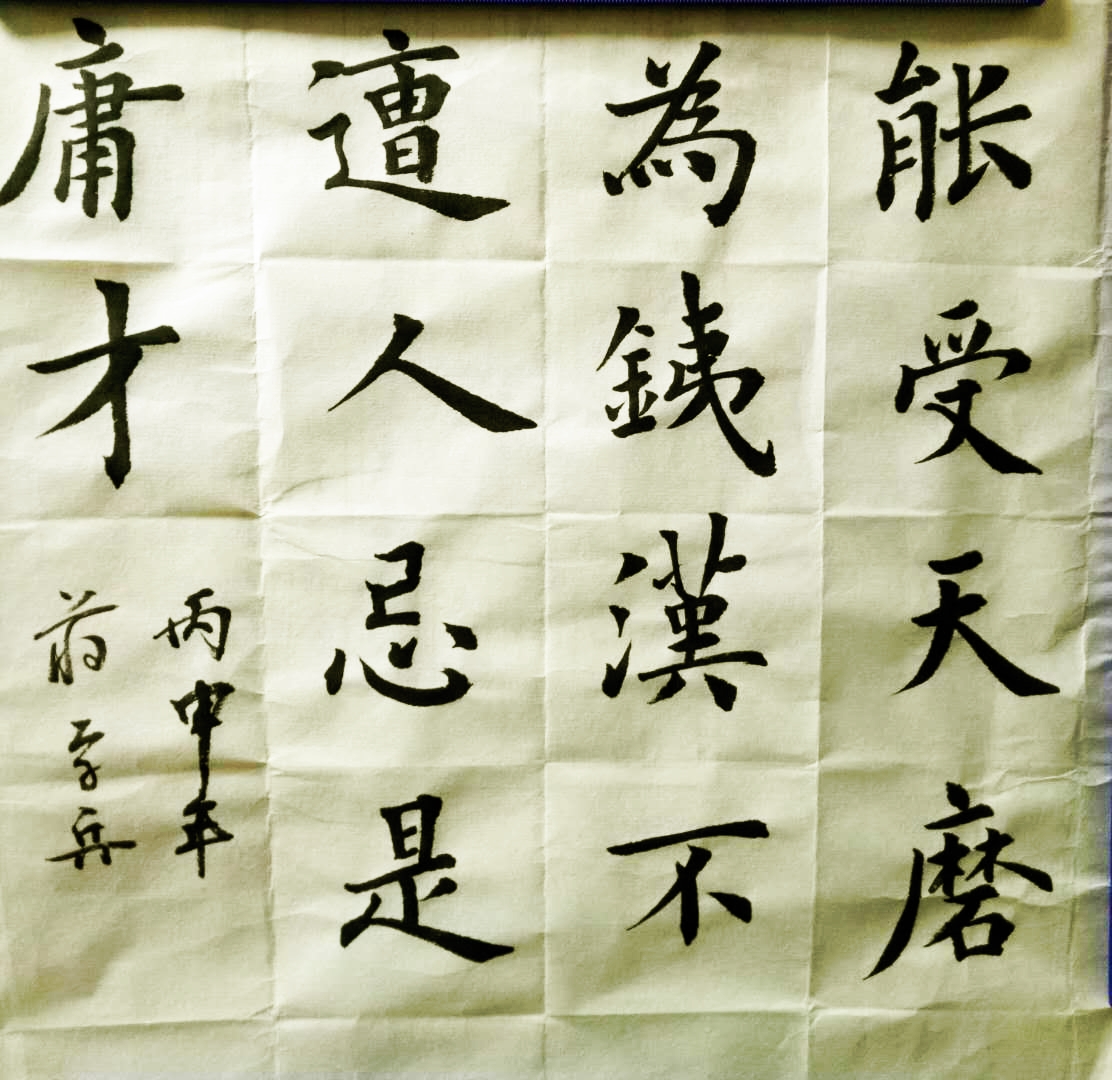 能受天磨
為銕漢不
遭人忌是
庸才
丙申年
蒋学兵